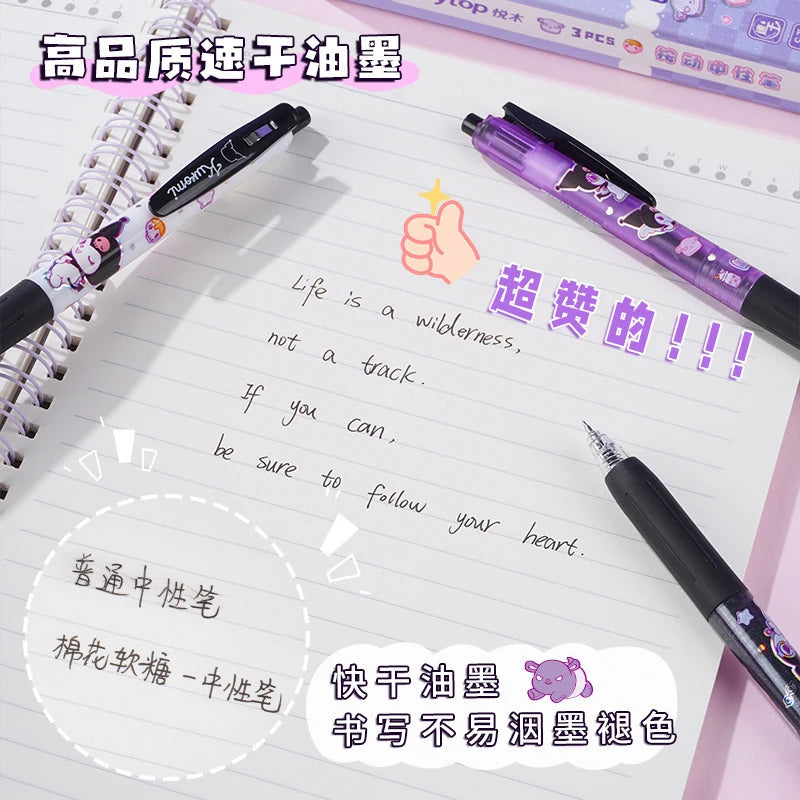 高品质速干油墨
ytop 悦木
3PCS
按动中性笔
Kuromi
S M T W T F S
超赞的!!!
Life is a wilderness,
not a track.
If you can,
be sure to follow your heart.
普通中性笔
棉花软糖-中性笔
快干油墨
书写不易洇墨褪色